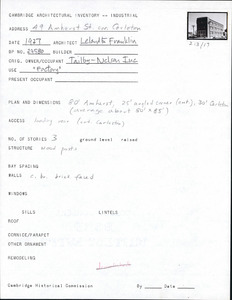 CAMBRIDGE ARCHITECTURAL INVENTORY -- INDUSTRIAL
ADDRESS 49 Amherst St cor Carleton
DATE 1927 ARCHITECT Leland & Franklin
BP NO. 24580 BUILDER
ORIG. OWNER/OCCUPANT Tailby-Nelson Inc
USE "Factory"
PRESENT OCCUPANT
2-8/17
PLAN AND DIMENSIONS 80' Amherst, 25' angled corner (ent), 30' Carleton
(average about 80' x 85')
ACCESS loading (ent Carleton)
NO. OF STORIES 3 ground level raised
STRUCTURE wood posts
BAY SPACING
WALLS c. b. brick faced
WINDOWS
SILLS LINTELS
ROOF
CORNICE/PARAPET
OTHER ORNAMENT
REMODELING
Cambridge Historical Commission By Date